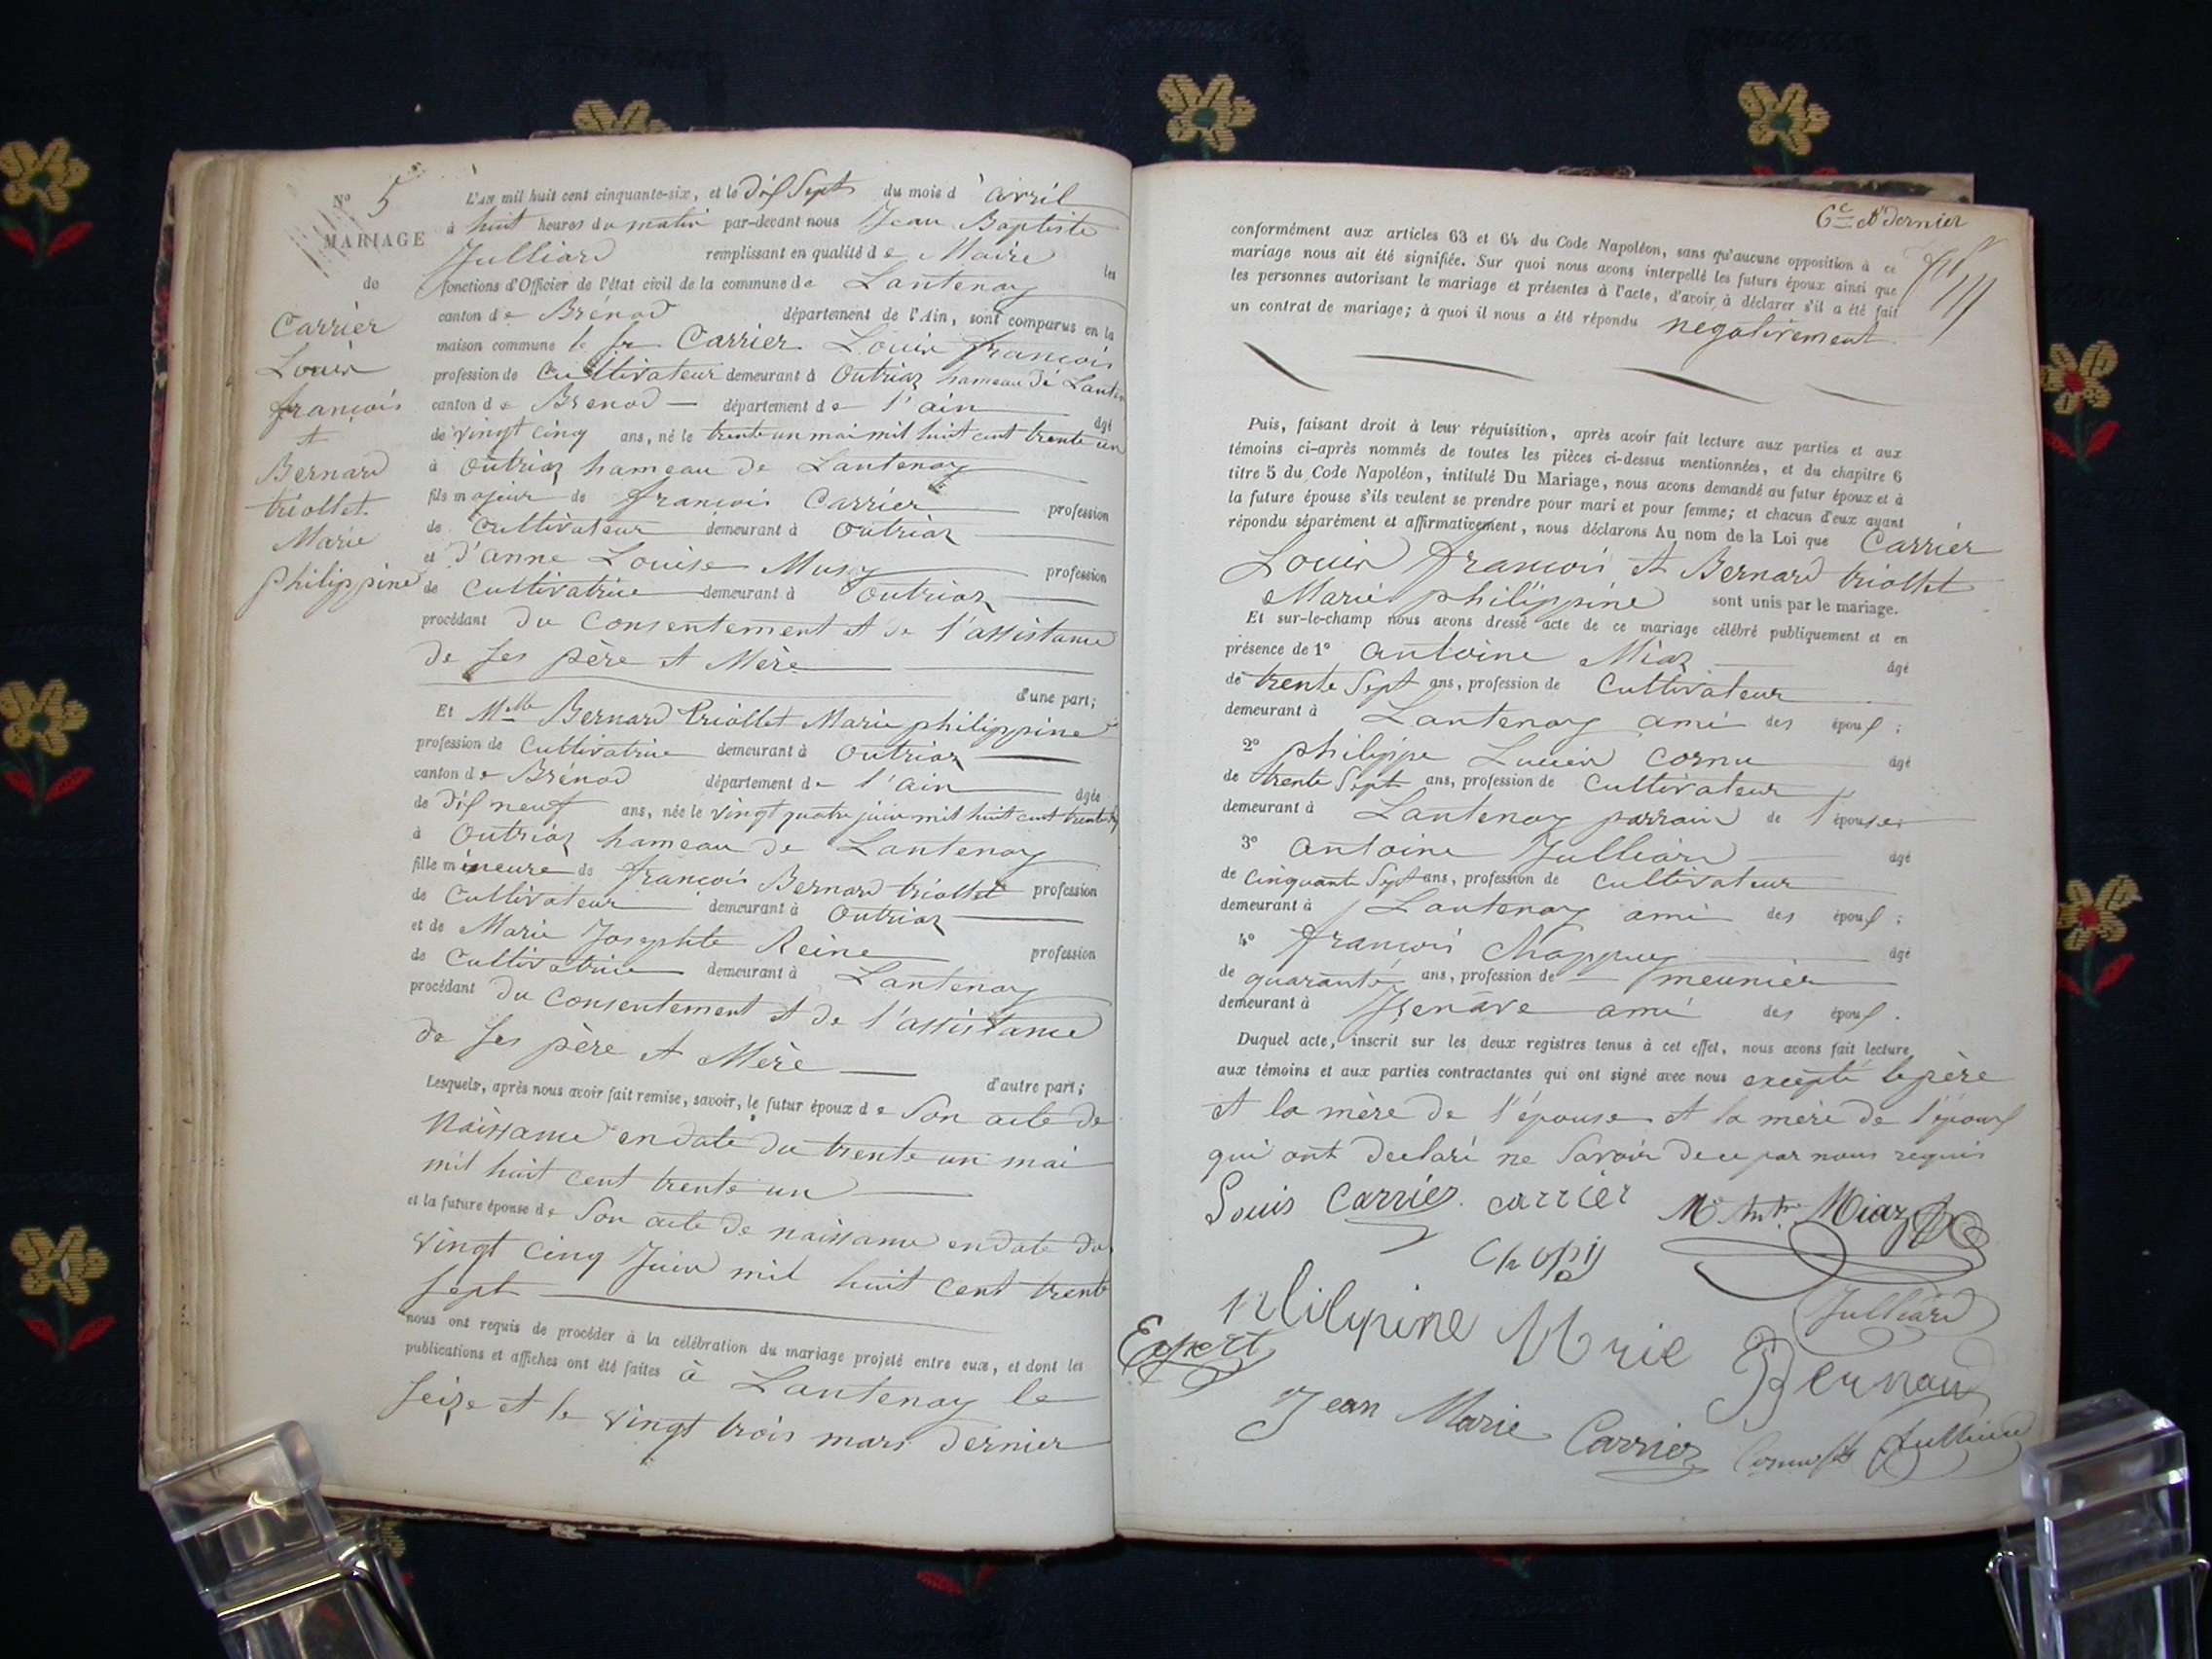 N° 5
MARIAGE
de
Carrier
Louis
françois
et
Bernard
triollet
Marie
philippine
L'AN mil huit cent cinquante-six, et le dix Sept du mois d'avril
à huit heures du matin par-devant nous Jean Baptiste
Julliard remplissant en qualité de Maire les
fonctions d'Officier de l'état civil de la commune de Lantenay
canton de Brénod département de l'Ain, sont comparus en la
maison commune le sr Carrier Louis françois
profession de Cultivateur demeurant à Outriaz hameau de Lanten
canton de Brenod département de l'ain âgé
de vingt cinq ans, né le trente un mai mil huit cent trente un
à Outriaz hameau de Lantenay
fils majeur de françois Carrier profession
de Cultivateur demeurant à Outriaz
et d'anne Louise Musy profession
de Cultivatrice demeurant à Outriaz
procédant du Consentement et de l'assistance
de ses père et Mère
d'une part;
Et Mlle Bernard triollet Marie philippine
profession de Cultivatrice demeurant à Outriaz
canton de Brénod département de l'ain âgée
de dix neuf ans, née le vingt quatre juin mil huit cent trente
à Outriaz hameau de Lantenay
fille mineure de françois Bernard triollet profession
de Cultivateur demeurant à Outriaz
et de Marie Josephte Reine profession
de Cultivatrice demeurant à Lantenay
procédant du Consentement et de l'assistance
de ses père et Mère
d'autre part;
Lesquels, après nous avoir fait remise, savoir, le futur époux de Son acte de
Naissance en date du trente un mai
mil huit cent trente un
et la future épouse de Son acte de naissance en date du
vingt cinq Juin mil huit cent trente
sept
nous ont requis de procéder à la célébration du mariage projeté entre eux, et dont les
publications et affiches ont été faites à Lantenay le
seize et le vingt trois mars dernier
6e et dernier
conformément aux articles 63 et 64 du Code Napoléon, sans qu'aucune opposition à ce
mariage nous ait été signifiée. Sur quoi nous avons interpellé les futurs époux ainsi que
les personnes autorisant le mariage et présentes à l'acte, d'avoir à déclarer s'il a été fait
un contrat de mariage; à quoi il nous a été répondu negativement
Puis, faisant droit à leur réquisition, après avoir fait lecture aux parties et aux
témoins ci-après nommés de toutes les pièces ci-dessus mentionnées, et du chapitre 6
titre 5 du Code Napoléon, intitulé Du Mariage, nous avons demandé au futur époux et à
la future épouse s'ils veulent se prendre pour mari et pour femme; et chacun d'eux ayant
répondu séparément et affirmativement, nous déclarons Au nom de la Loi que Carrier
Louis françois et Bernard triollet
Marie philippine sont unis par le mariage.
Et sur-le-champ nous avons dressé acte de ce mariage célébré publiquement et en
présence de 1° antoine Miaz âgé
de trente Sept ans, profession de Cultivateur
demeurant à Lantenay ami des époux;
2° philippe Lucien Cornu âgé
de trente Sept ans, profession de Cultivateur
demeurant à Lantenay parrain de l'épouse;
3° antoine Julliard âgé
de cinquante Sept ans, profession de Cultivateur
demeurant à Lantenay ami des époux;
4° françois Chappuy âgé
de quarante ans, profession de meunier
demeurant à Izenave ami des époux.
Duquel acte, inscrit sur les deux registres tenus à cet effet, nous avons fait lecture
aux témoins et aux parties contractantes qui ont signé avec nous excepté le père
et la mère de l'épouse et la mère de l'époux
qui ont declaré ne Savoir de ce par nous requis
Louis Carrier carrier Miaz
Julliard
Marie
Expert Bernard
Jean Marie Carrier Julliard